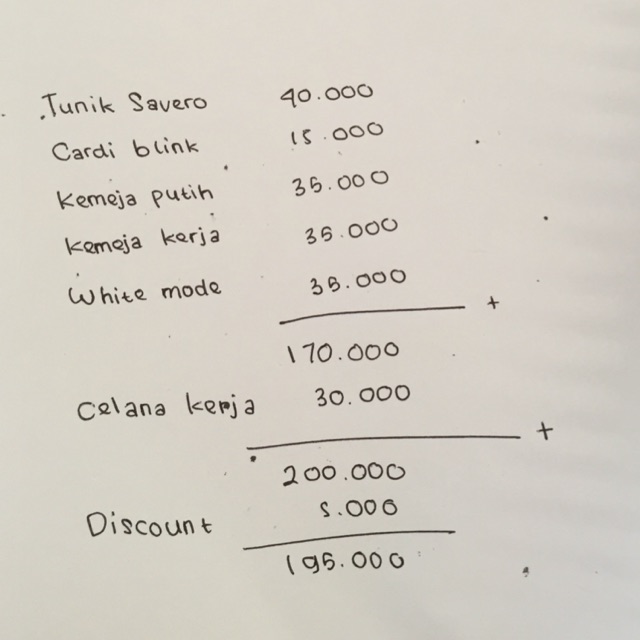 Tunik Savero 40.000
Cardi blink 15.000
Kemeja putih 35.000
Kemeja kerja 35.000
White mode 35.000
+
170.000
Celana kerja 30.000
+
200.000
Discount 5.000
195.000